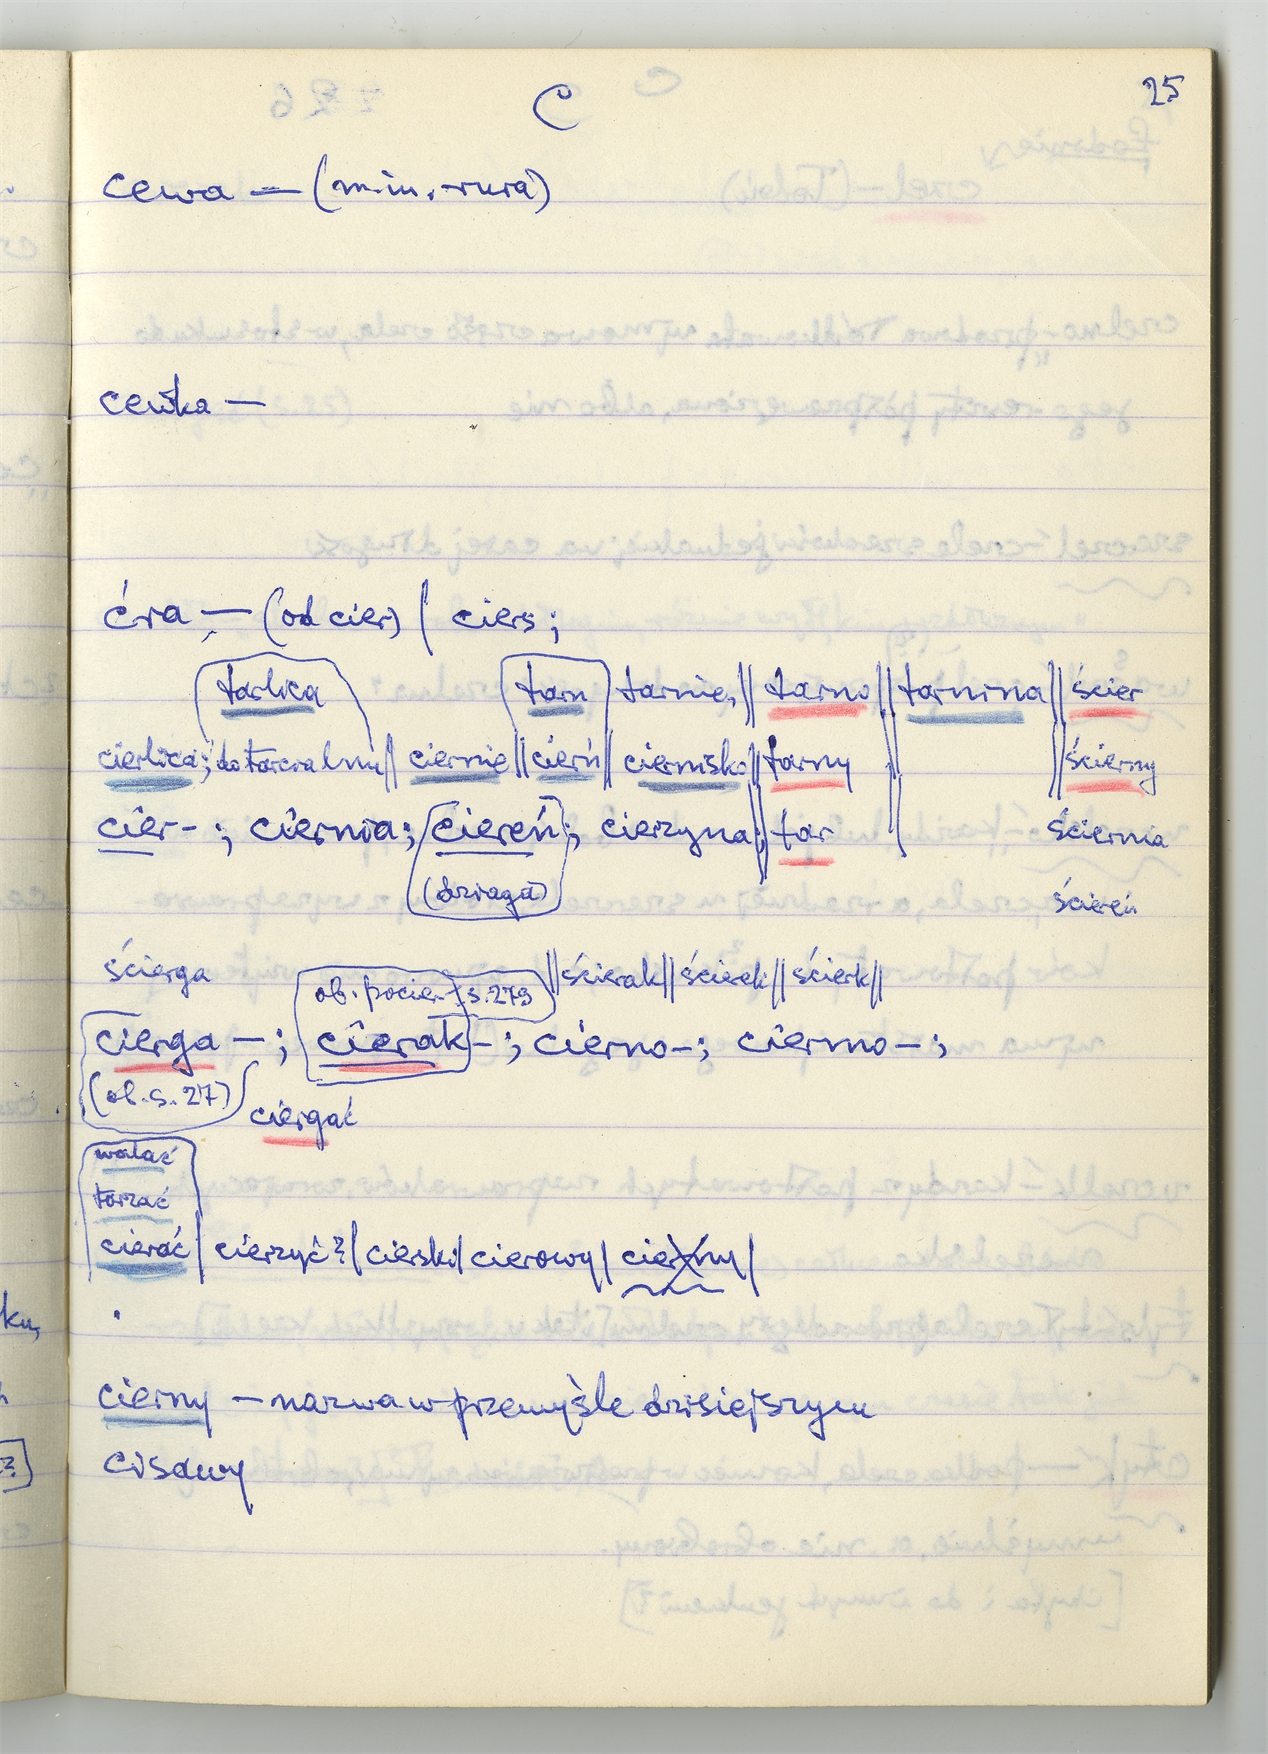 25
C
cewa — (m.in. rura)
cewka —
ćra — (od cier) | ciers;
tarlica tarn tarnie, || tarno || tarnina || ścier
cierlica; do tarcralmy || ciernie || cierń | ciernisko || tarny || ścierny
cier- ; ciernia; ciereń; cierzyna || tar ściernia
(dziaga) ściereń
ścierga ob. pocier- s. 279 || ścierak || ścierek || ścierk ||
cierga — ; cierak - ; cierno - ; ciermo - ;
(ob. s. 27) ciergać
walać
tarzać
cierać | cierzyć? | cierski | cierowy | cierzny |
cierny — nazwa w przemyśle dzisiejszym
cisawy
ku,